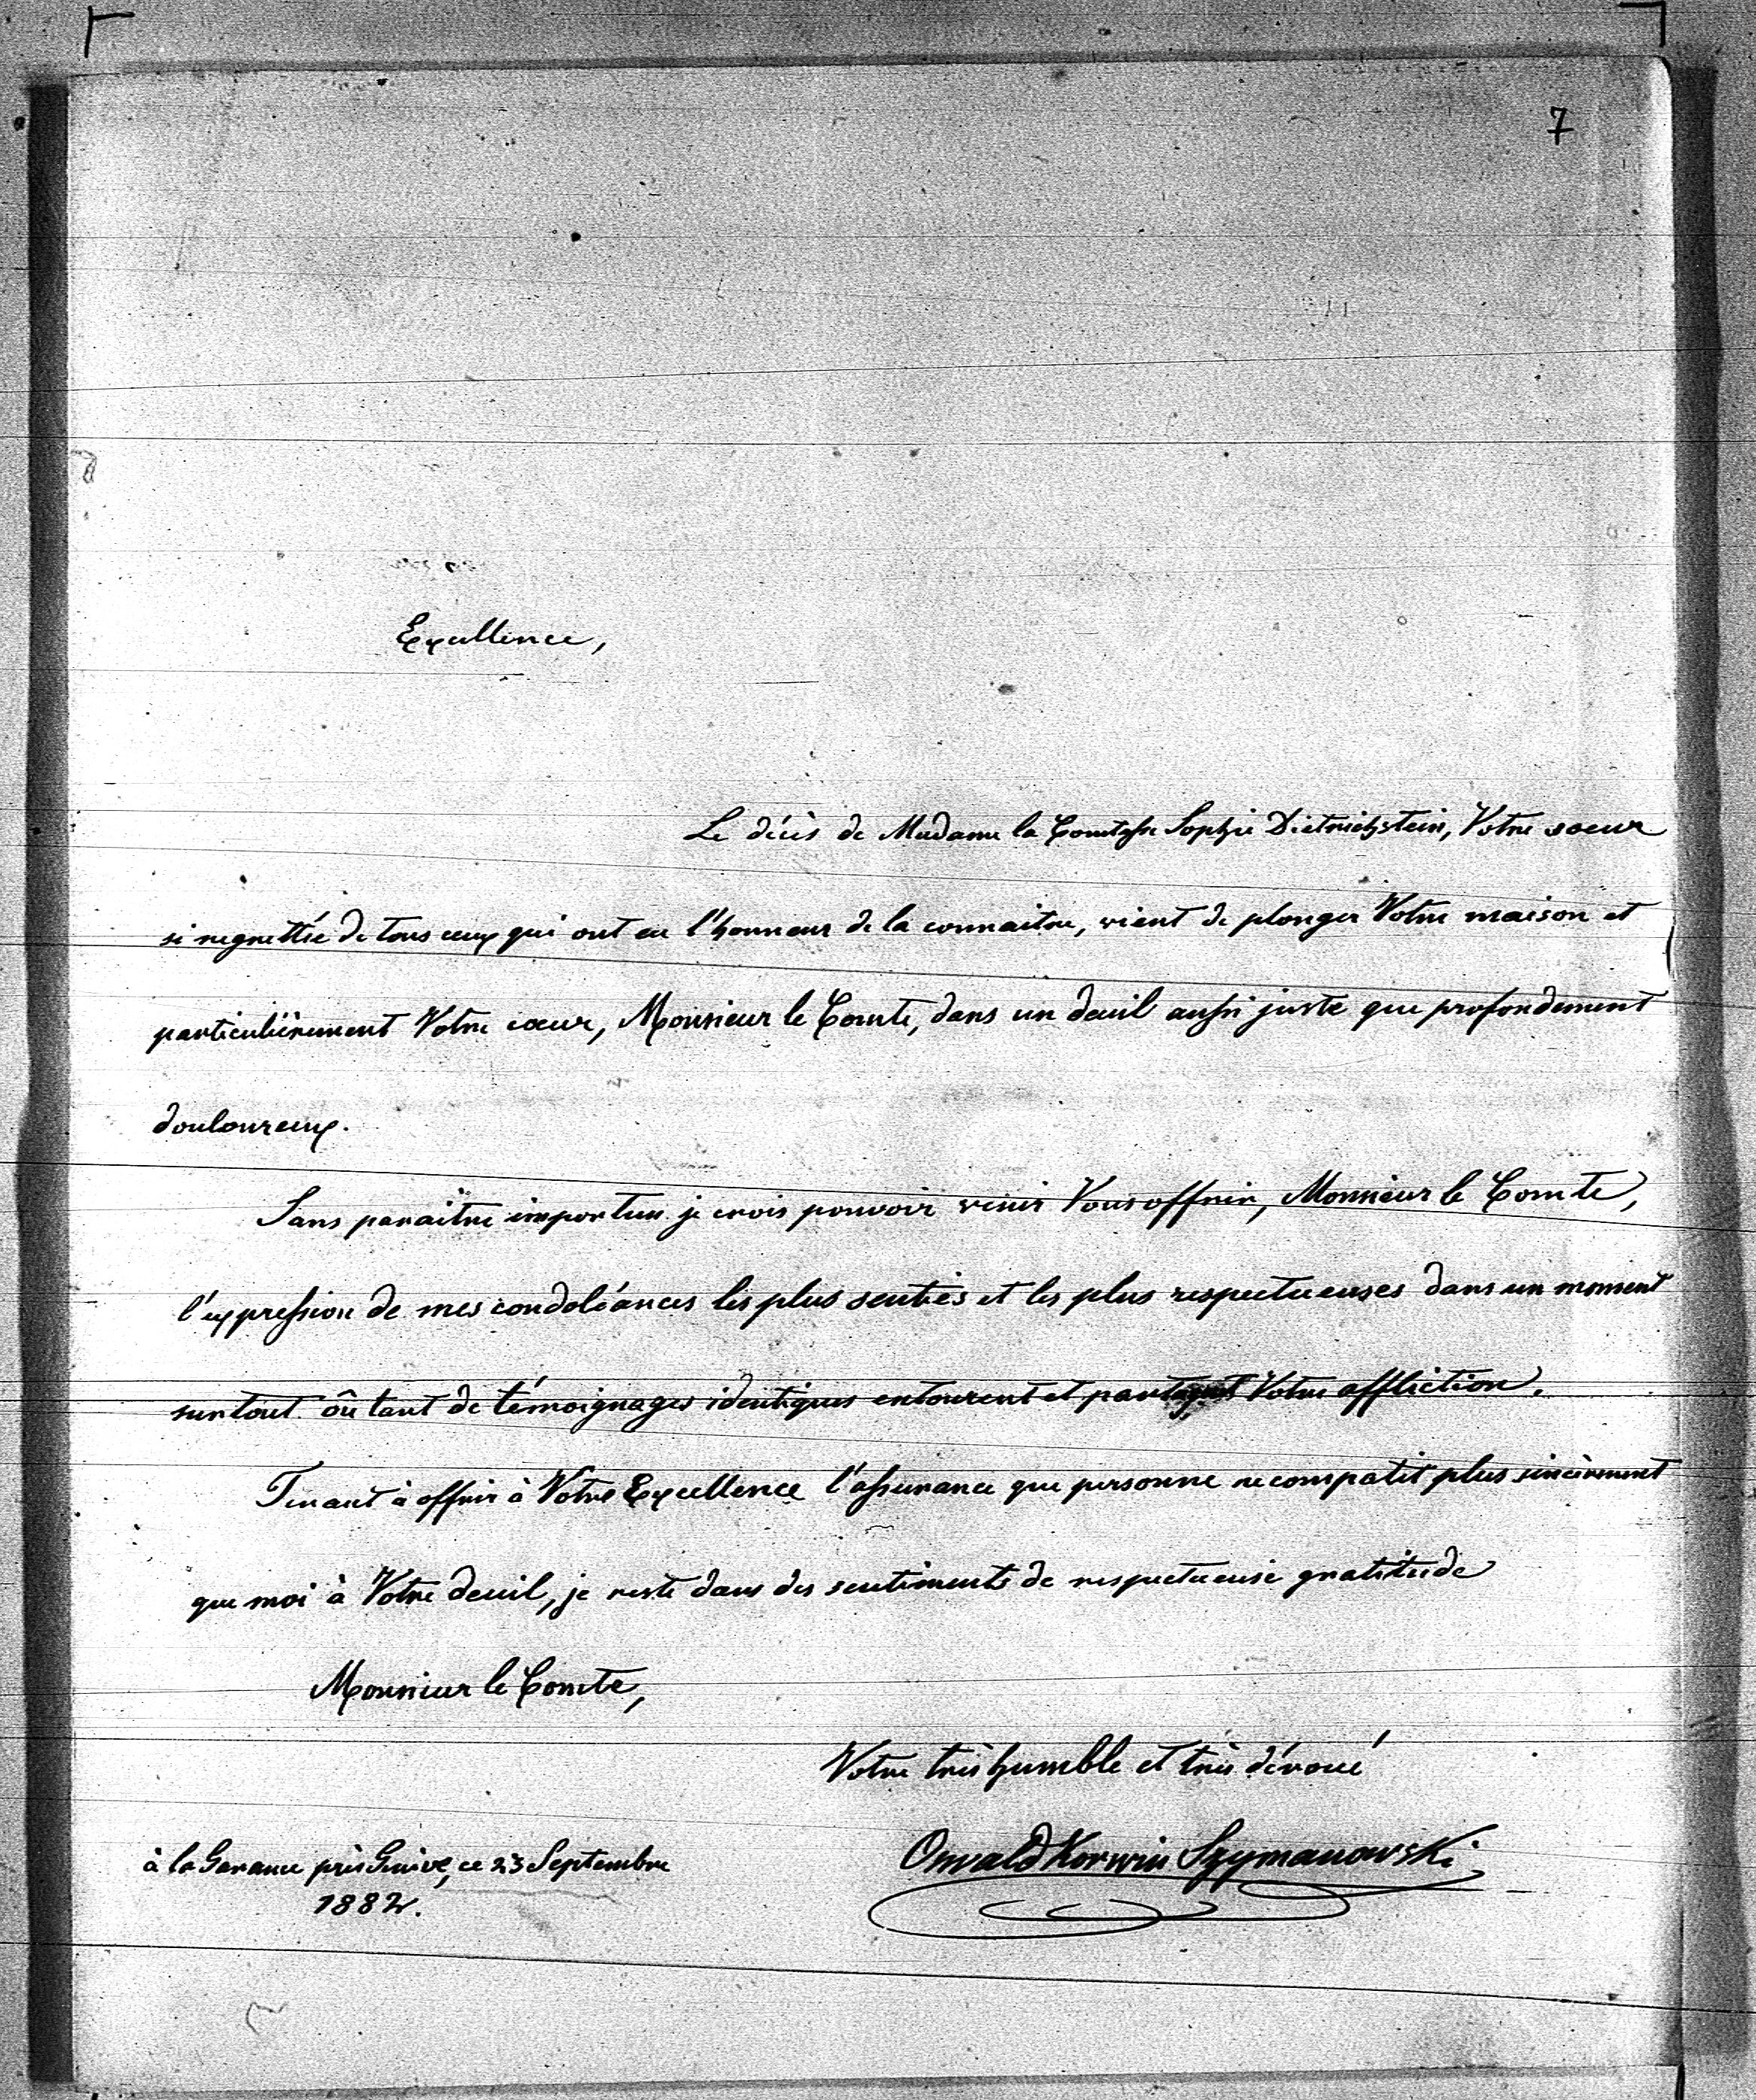 7
Excellence,
Le décès de Madame la Comtesse Sophie Dietrichstein, Votre soeur
si regrettée de tous ceux qui ont eu l'honneur de la connaitre, vient de plonger Votre maison et
particulièrement Votre coeur, Monsieur le Comte, dans un deuil aussi juste que profondement
douloureux.
Sans paraître importun je crois pouvoir venir Vous offrir, Monsieur le Comte,
l'expression de mes condoléances les plus senties et les plus respectueuses dans un moment
surtout où tant de témoignages identiques entourent et partagent Votre affliction.
Tenant à offrir à Votre Excellence l'assurance que personne ne compatit plus sincèrement
que moi à Votre deuil, je reste dans des sentiments de respectueuse gratitude
Monsieur le Comte,
Votre très humble et très dévoué
Oswald Korwin Szymanowski
à la Garance près Genève, ce 23 Septembre
1882.